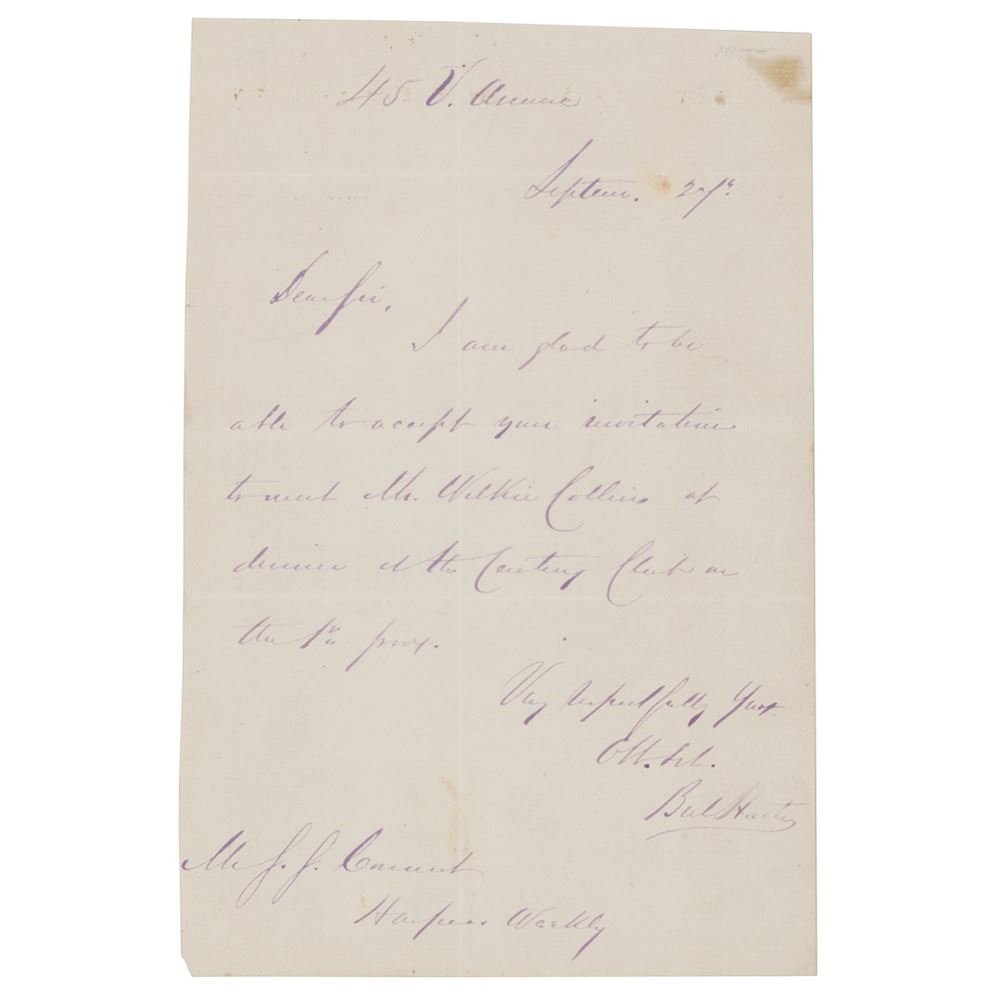 45 V. Avenue
Septem. 27th
Dear Sir,
I am glad to be
able to accept your invitation
to meet Mr. Wilkie Collins at
dinner at the Century Club on
the 1st prox.
Very respectfully Yours
Obt. Svt.
Bret Harte
Mr S. S. Conant
Harpers Weekly